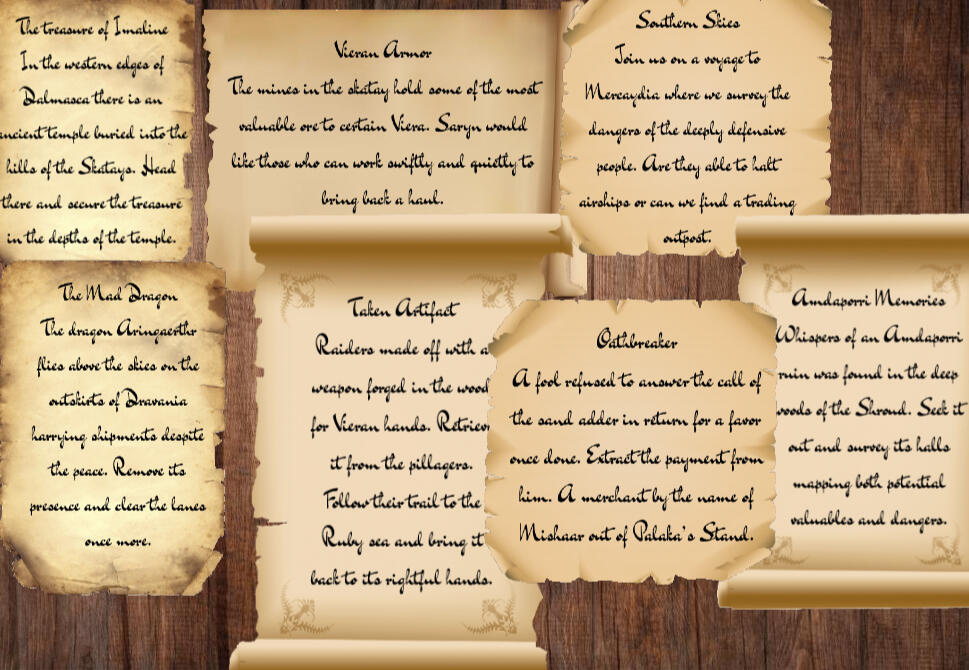 The treasure of Imaline
In the western edges of
Dalmasca there is an
ancient temple buried into the
hills of the Skatays. Head
there and secure the treasure
in the depths of the temple.
Vieran Armor
The mines in the skatay hold some of the most
valuable ore to certain Viera. Saryn would
like those who can work swiftly and quietly to
bring back a haul.
Southern Skies
Join us on a voyage to
Mercaydia where we survey the
dangers of the deeply defensive
people. Are they able to halt
airships or can we find a trading
outpost.
The Mad Dragon
The dragon Aringaerthr
flies above the skies on the
outskirts of Dravania
harrying shipments despite
the peace. Remove its
presence and clear the lanes
once more.
Taken Artifact
Raiders made off with a
weapon forged in the wood
for Vieran hands. Retrieve
it from the pillagers.
Follow their trail to the
Ruby sea and bring it
back to its rightful hands.
Oathbreaker
A fool refused to answer the call of
the sand adder in return for a favor
once done. Extract the payment from
him. A merchant by the name of
Mishaar out of Palaka's Stand.
Amdaporri Memories
Whispers of an Amdaporri
ruin was found in the deep
woods of the Shroud. Seek it
out and survey its halls
mapping both potential
valuables and dangers.